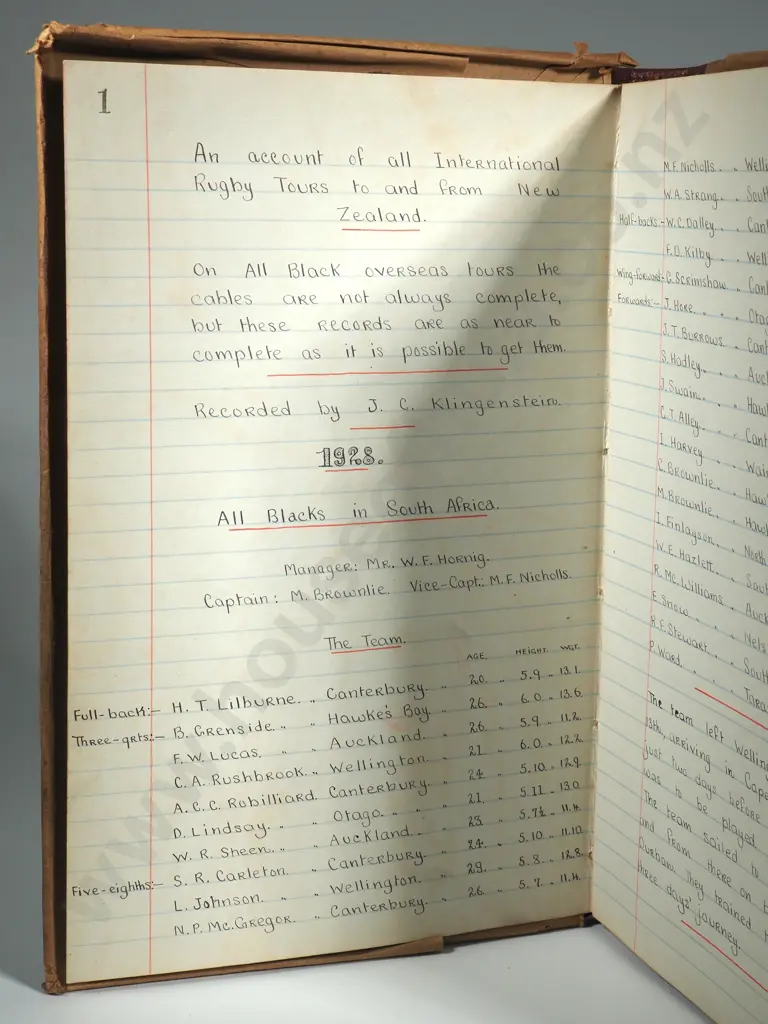 1
An account of all International
Rugby Tours to and from New
Zealand.
On All Black overseas tours the
cables are not always complete,
but these records are as near to
complete as it is possible to get them.
Recorded by J. C. Klingenstein.
1928.
All Blacks in South Africa.
Manager: Mr. W. F. Hornig.
Captain: M. Brownlie. Vice-Capt.: M. F. Nicholls.
The Team.
AGE. HEIGHT. WGT.
Full-back:- H. T. Lilburne. " Canterbury. " 20. " 5.9 " 13.1.
Three-qrts:- B. Grenside. " " Hawke's Bay. " 26. " 6.0 " 13.6.
F. W. Lucas. " " Auckland. " 26. " 5.9 " 11.2.
C. A. Rushbrook. " Wellington. " 21 " 6.0. " 12.2.
A. C. C. Robilliard. Canterbury. " 24. " 5.10. " 12.9.
D. Lindsay. " " Otago. " " " 21. " 5.11 " 13.0
W. R. Sheen. " " Auckland. " " 23. " 5.7½ " 11.4.
Five-eighths:- S. R. Carleton. " Canterbury. " 24. " 5.10 " 11.10.
L. Johnson. " " Wellington. " 29. " 5.8. " 12.8.
N. P. Mc.Gregor. " Canterbury. " 26. " 5.7. " 11.4.
M. F. Nicholls. " " Welli
W. A. Strang. " " Sout
Half-backs:- W. C. Dalley. " Can
F. D. Kilby. " " Well
Wing-forward:- G. Scrimshaw " Cant
Forwards:- J. Hore. " " " Otag
J. T. Burrows. " Cant
S. Hadley. " " Auc
J. Swain. " " Haw
G. T. Alley. " " Cant
I. Harvey. " " Wair
C. Brownlie. " Haw
M. Brownlie. " Hawk
I. Finlayson. " North
W. E. Hazlett. " Sout
R. Mc.Williams. " Auck
E. Snow. " " Nels
R. F. Stewart. " South
P. Ward. " " " Tara
The team left Welling
13th, arriving in Cape
just two days before
was to be played.
The team sailed to
and from there on t
Durban. They trained
three days' journey.